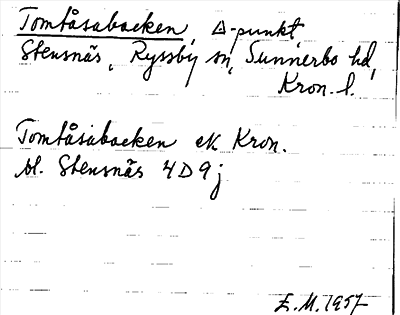 Tomtåsabacken △-punkt
Stensnäs, Ryssby sn, Sunnerbo hd,
Kron. l.
Tomtåsabacken ek Kron.
bl. Stensnäs 4D9j
E.M. 1957